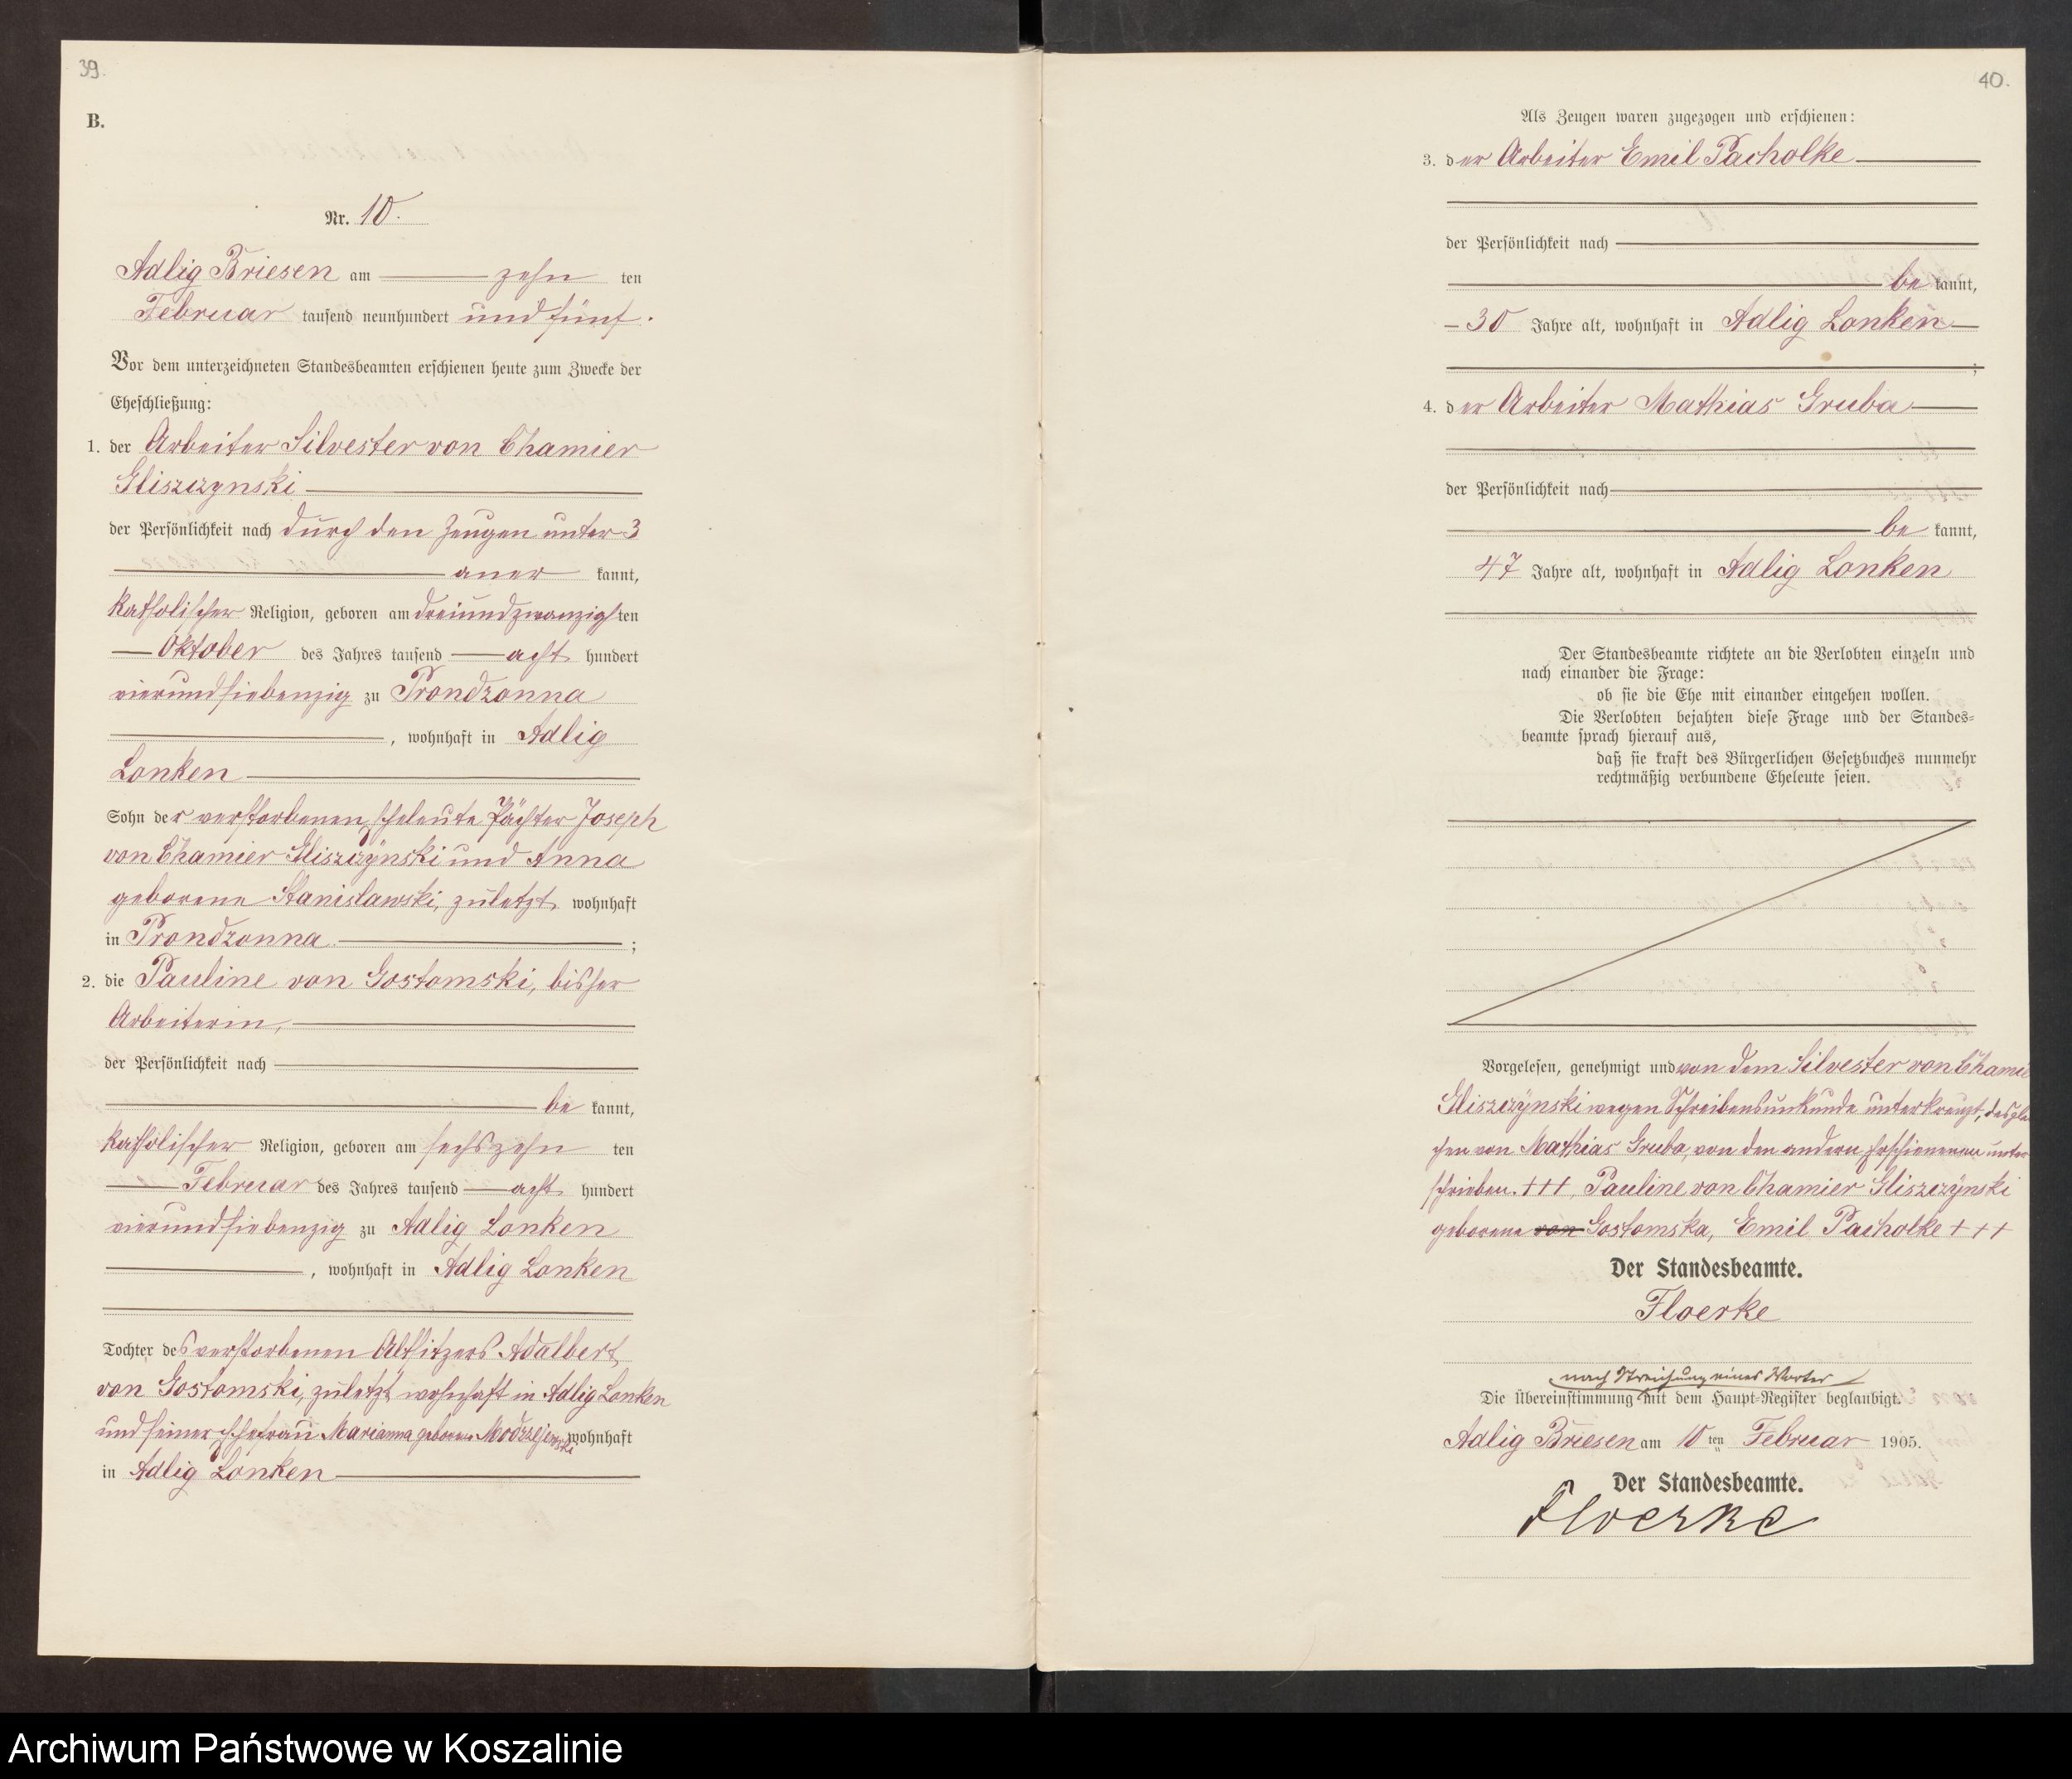 39.
B.
Nr. 10.
Adlig Briesen am zehn ten
Februar tausend neunhundert und fünf.
Vor dem unterzeichneten Standesbeamten erschienen heute zum Zwecke der
Eheschließung:
1. der Arbeiter Silvester von Chamier
Gliszczynski
der Persönlichkeit nach durch den Zeugen unter 3
aner kannt,
katholischer Religion, geboren am dreiundzwanzigsten
Oktober des Jahres tausend acht hundert
vierundsiebenzig zu Prondzonna
, wohnhaft in Adlig
Lonken
Sohn der verstorbenen Eheleute Pächter Joseph
von Chamier Gliszczynski und Anna
geborene Stanislawski, zuletzt wohnhaft
in Prondzonna ;
2. die Pauline von Gostomski, bisher
Arbeiterin,
der Persönlichkeit nach
be kannt,
katholischer Religion, geboren am sechszehn ten
Februar des Jahres tausend acht hundert
vierundsiebenzig zu Adlig Lonken
, wohnhaft in Adlig Lonken
Tochter des verstorbenen Altsitzers Adalbert
von Gostomski, zuletzt wohnhaft in Adlig Lonken
und seiner Ehefrau Marianna geborene Modrzejewski wohnhaft
in Adlig Lonken
40.
Als Zeugen waren zugezogen und erschienen:
3. der Arbeiter Emil Pacholke
der Persönlichkeit nach
be kannt,
30 Jahre alt, wohnhaft in Adlig Lonken
;
4. der Arbeiter Mathias Gruba
der Persönlichkeit nach
be kannt,
47 Jahre alt, wohnhaft in Adlig Lonken
Der Standesbeamte richtete an die Verlobten einzeln und
nach einander die Frage:
ob sie die Ehe mit einander eingehen wollen.
Die Verlobten bejahten diese Frage und der Standes-
beamte sprach hierauf aus,
daß sie kraft des Bürgerlichen Gesetzbuches nunmehr
rechtmäßig verbundene Eheleute seien.
Vorgelesen, genehmigt und von dem Silvester von Chamier
Gliszczynski wegen Schreibensunkunde unterkreuzt, desglei
chen von Mathias Gruba, von den andern Erschienenen unter
schrieben. +++, Pauline von Chamier Gliszczynski
geborene von Gostomska, Emil Pacholke +++
Der Standesbeamte.
Floerke
nach Streichung eines Wortes
Die Übereinstimmung mit dem Haupt-Register beglaubigt.
Adlig Briesen am 10 ten Februar 1905.
Der Standesbeamte.
Floerke
Archiwum Państwowe w Koszalinie